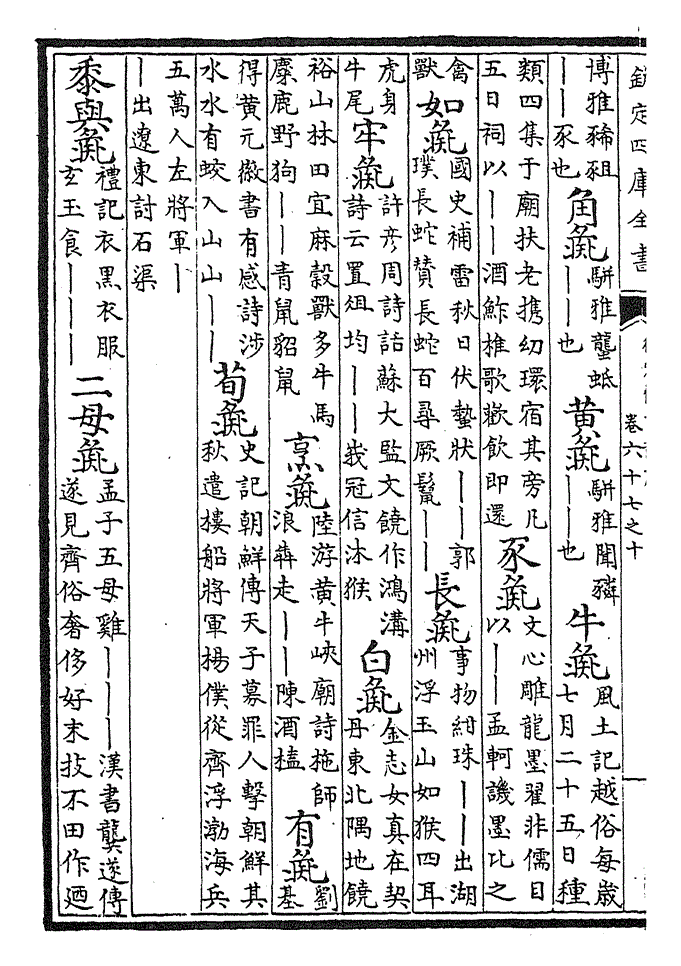 欽定四庫全書
卷六十七之十
博雅豨豠丨丨豕也 角彘 駢雅蠪蚳丨丨丨也 黄彘 駢雅聞獜丨丨丨也 牛彘 風土記越俗每歳七月二十五日種
類四集于廟扶老攜幼環宿其旁凡五日祠以丨丨酒鮓椎歌歡飲即還 豕彘 文心雕龍墨翟非儒目以丨丨孟軻譏墨比之
禽獸 如彘 國史補雷秋日伏蟄狀丨丨郭璞長蛇贊長蛇百尋厥鬛丨丨 長彘 事物紺珠丨丨出湖州浮玉山如猴四耳
虎身牛尾 牢彘 許彦周詩話蘇大監文饒作鴻溝詩云置俎均丨丨峩冠信沐猴 白彘 金志女真在契丹東北隅地饒
裕山林田宜麻穀獸多牛馬麋鹿野狗丨丨青鼠貂鼠 烹彘 陸游黄牛峽廟詩拖師浪犇走丨丨陳酒榼 有彘 劉基
得黄元徽書有感詩涉水水有蛟入山山丨丨 荀彘 史記朝鮮傳天子募罪人擊朝鮮其秋遣樓船將軍楊僕從齊浮渤海兵
五萬人左將軍丨丨出遼東討石渠
黍與彘 禮記衣黑衣服玄玉食丨丨丨 二母彘 孟子五母雞丨丨丨漢書龔遂傳遂見齊俗奢侈好末技不田作廼